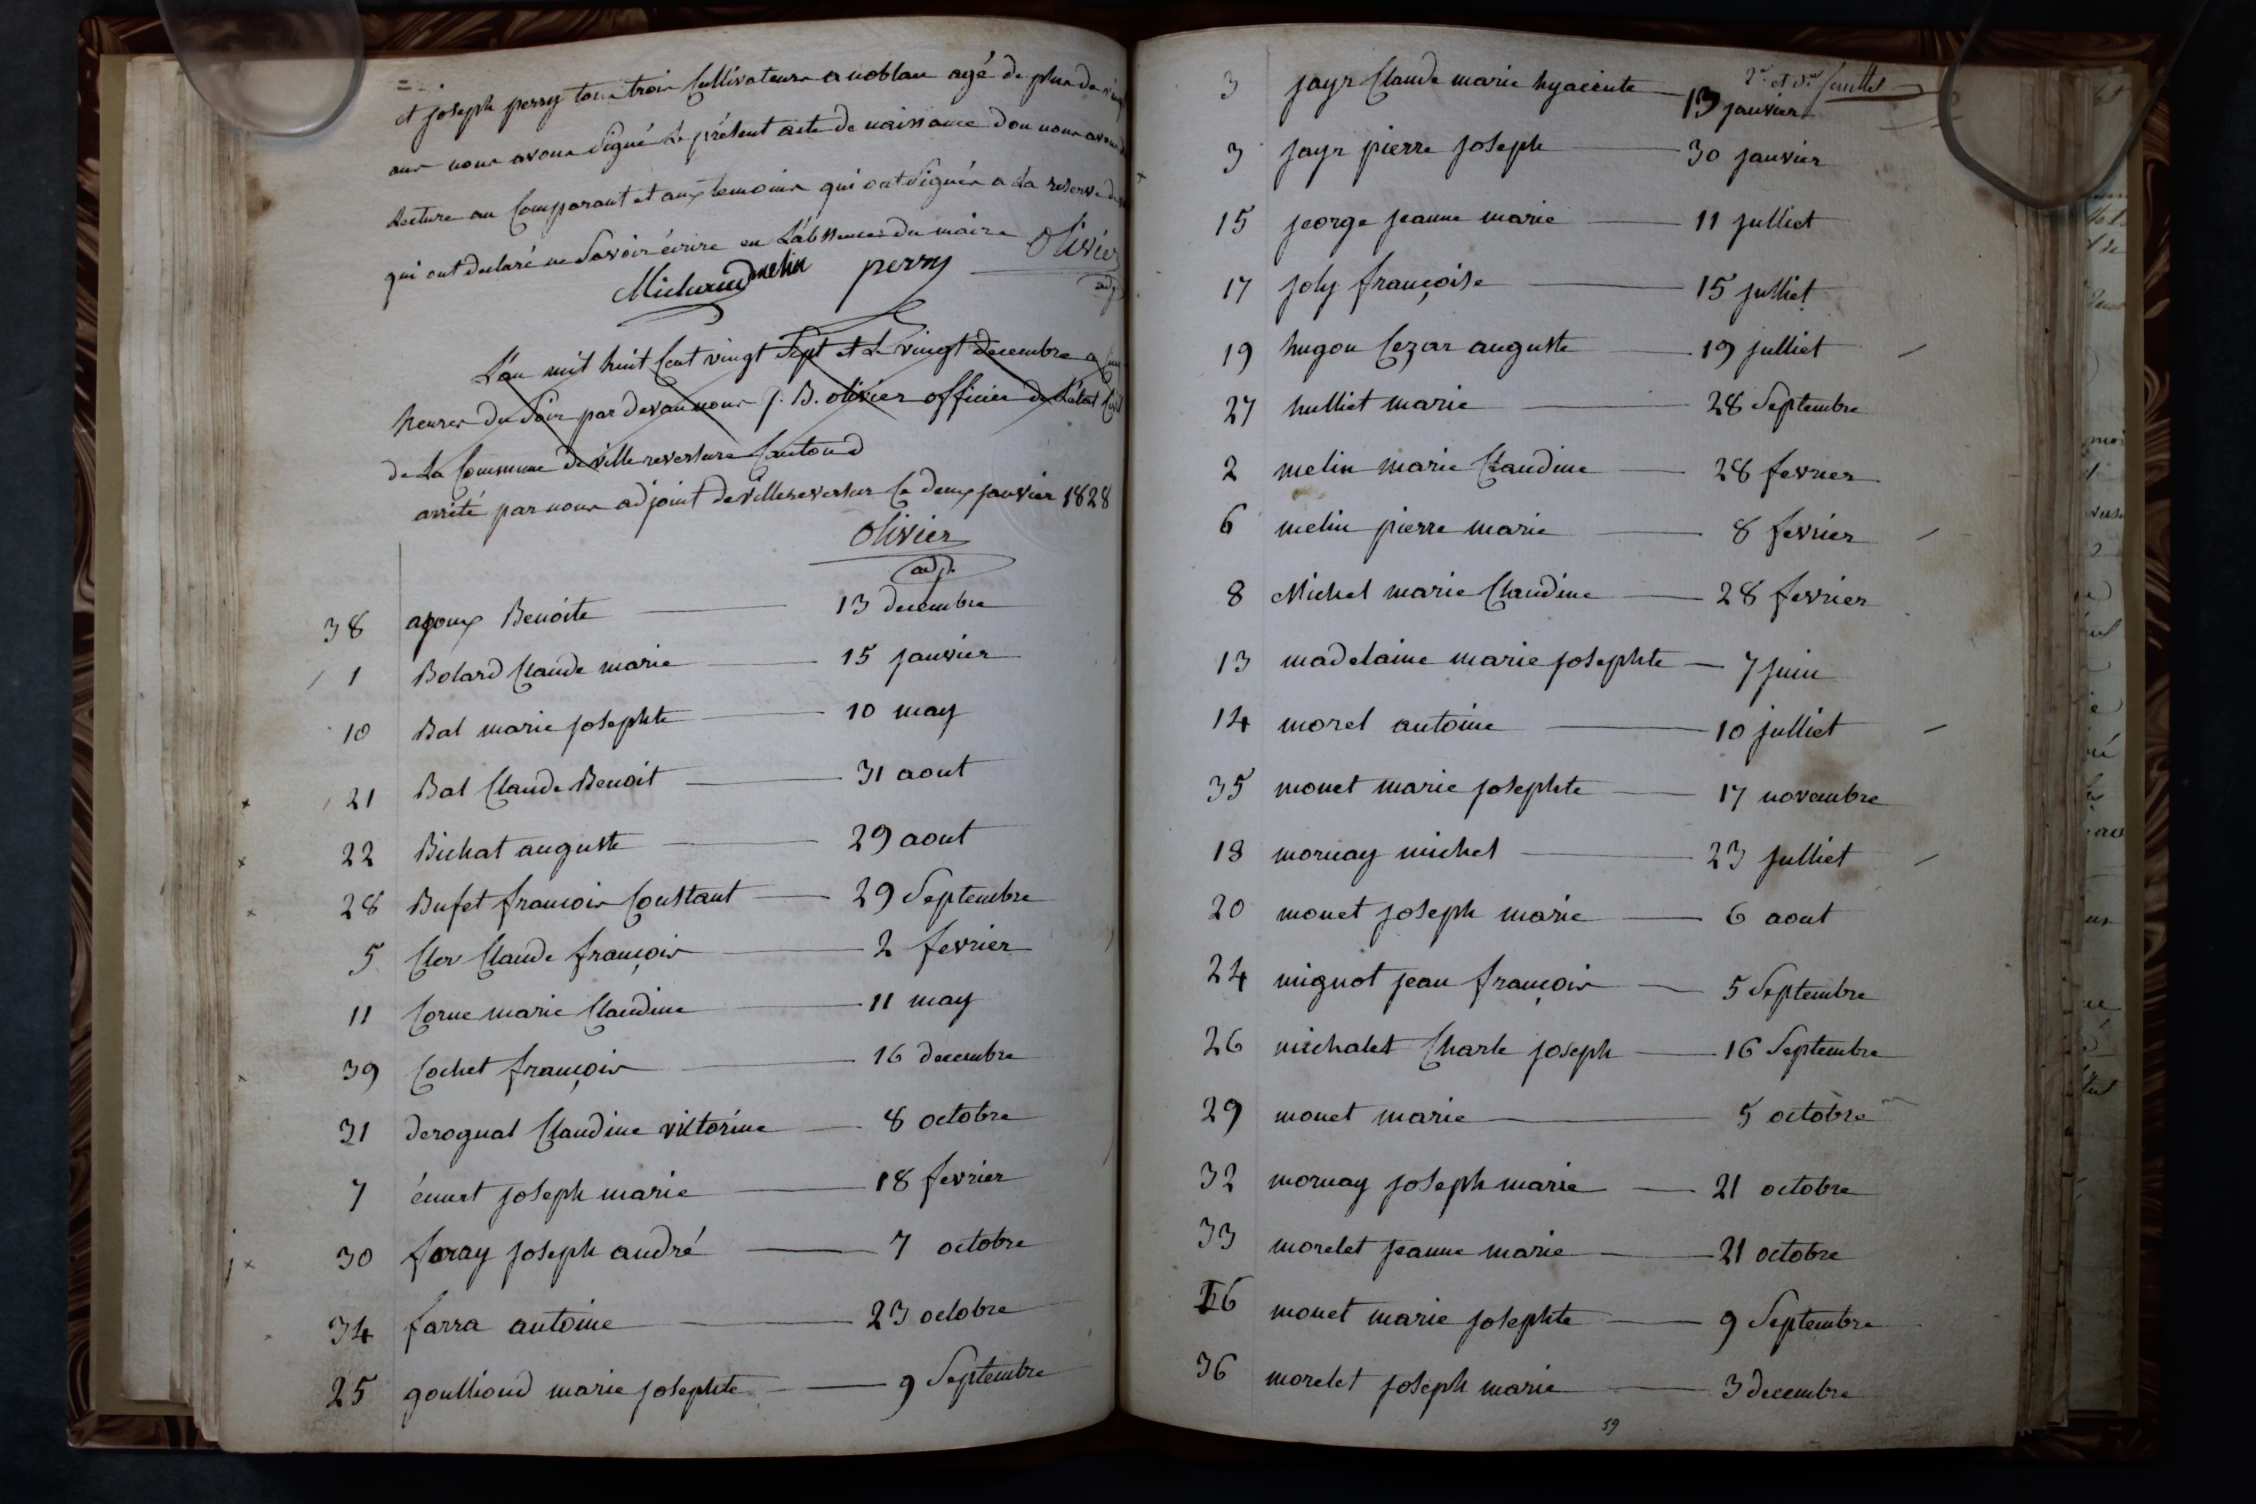 et joseph perry tous trois Cultivateurs a noblan agé de plus de
ans nous avons Signé Le présent acte de naissance dou nous avons
Lecture au Comparant et aux temoins qui ont Signés a La reserve de
qui ont declaré ne Savoir écrire en Labssences du maire Olivier
Michaud melin perry adj
L'an mil huit Cent vingt Sept et Le vingt decembre a
heures du Soir par devan nous J. B. olivier officier de L'état Civil
de La Commune de villereversure Canton d
arrêté par nous adjoint de villereversur Le deux janvier 1828
Olivier
adj.
38 apoux Benoite 13 decembre
1 Bolard Claude marie 15 janvier
10 Bal marie josephte 10 may
21 Bal Claude Benoit 31 aout
22 Bichat auguste 29 aout
28 Bufet francois Constant 29 Septembre
5 Cler Claude françois 2 fevrier
11 Corne marie Claudine 11 may
39 Cochet françois 16 decembre
31 derognat Claudine victorine 8 octobre
7 joseph marie 18 fevrier
30 foray joseph andré 7 octobre
34 farra antoine 23 octobre
25 goullioud marie josephte 9 Septembre
2e et 3e feuillet
3 jayr Claude marie hyacinte 13 janvier
3 jayr pierre joseph 30 janvier
15 jeorge jeanne marie 11 julliet
17 joly françoise 15 julliet
19 hugon Cezar auguste 19 julliet
27 hulliet marie 28 Septembre
2 melin marie Claudine 28 fevrier
6 melin pierre marie 8 fevrier
8 Michel marie Claudine 28 fevrier
13 madelaine marie josephte 7 juin
14 morel antoine 10 julliet
35 monet marie josephte 17 novembre
18 mornay michel 23 julliet
20 monet joseph marie 6 aout
24 mignot jean françois 5 Septembre
26 michalet Charle joseph 16 Septembre
29 monet marie 5 octobre
32 mornay joseph marie 21 octobre
33 morelet jeanne marie 21 octobre
monet marie josephte 9 Septembre
36 morelet joseph marie 3 decembre
59